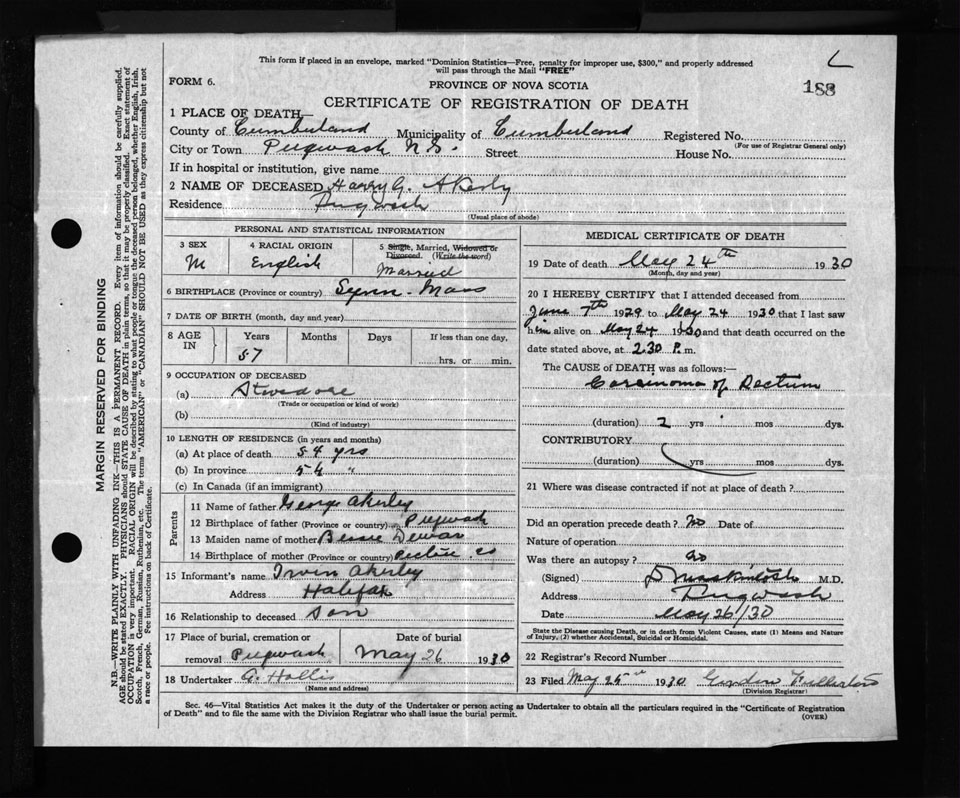 This form if placed in an envelope, marked "Dominion Statistics—Free, penalty for improper use, $300," and properly addressed
will pass through the Mail "FREE"
FORM 6.
PROVINCE OF NOVA SCOTIA
188
CERTIFICATE OF REGISTRATION OF DEATH
1 PLACE OF DEATH—
County of Cumberland Municipality of Cumberland Registered No.
(For use of Registrar General only)
City or Town Pugwash N.S. Street House No.
If in hospital or institution, give name
2 NAME OF DECEASED Harry G. Akerly
Residence Pugwash
(Usual place of abode)
PERSONAL AND STATISTICAL INFORMATION
3 SEX 4 RACIAL ORIGIN 5 Single, Married, Widowed or
Divorced. (Write the word)
M English Married
6 BIRTHPLACE (Province or country) Lynn. Mass
7 DATE OF BIRTH (month, day and year)
8 AGE IN Years Months Days If less than one day,
57 hrs. or min.
9 OCCUPATION OF DECEASED
(a) Stevedore
(Trade or occupation or kind of work)
(b)
(Kind of industry)
10 LENGTH OF RESIDENCE (in years and months)
(a) At place of death 54 yrs
(b) In province 54 "
(c) In Canada (if an immigrant)
Parents
11 Name of father George Akerley
12 Birthplace of father (Province or country) Pugwash
13 Maiden name of mother Bessie Dewar
14 Birthplace of mother (Province or country) Pictou Co
15 Informant's name Irvin Akerley
Address Halifax
16 Relationship to deceased Son
17 Place of burial, cremation or Date of burial
removal Pugwash May 26 1930
18 Undertaker G. Hollis
(Name and address)
MEDICAL CERTIFICATE OF DEATH
19 Date of death May 24th 1930
(Month, day and year)
20 I HEREBY CERTIFY that I attended deceased from
June 7th 1929 to May 24 1930 that I last saw
him alive on May 24 1930 and that death occurred on
date stated above, at 2.30 P. m.
The CAUSE of DEATH was as follows:—
Carsinoma of Rectum
(duration) 2 yrs mos dys.
CONTRIBUTORY
(duration) yrs mos dys.
21 Where was disease contracted if not at place of death?
Did an operation precede death? No Date of
Nature of operation
Was there an autopsy? No
(Signed) D Mackintosh M.D.
Address Pugwash
Date May 26/30
State the Disease causing Death, or in death from Violent Causes, state (1) Means and Nature
of Injury, (2) whether Accidental, Suicidal or Homicidal.
22 Registrar's Record Number
23 Filed May 25th 1930 Gordon Fullerton
(Division Registrar)
Sec. 46—Vital Statistics Act makes it the duty of the Undertaker or person acting as Undertaker to obtain all the particulars required in the "Certificate of Registration
of Death" and to file the same with the Division Registrar who shall issue the burial permit.
(OVER)
MARGIN RESERVED FOR BINDING
N.B.—WRITE PLAINLY WITH UNFADING INK—THIS IS A PERMANENT RECORD. Every item of information should be carefully supplied.
AGE should be stated EXACTLY. PHYSICIANS should STATE CAUSE OF DEATH in plain terms, so that it may be properly classified. Exact statement of
OCCUPATION is very important. RACIAL ORIGIN will be described by stating to what people or tongue the deceased person belonged, whether English, Irish,
Scotch, French, German, Russian, Ruthenian, etc. The terms "AMERICAN" or "CANADIAN" SHOULD NOT BE USED as they express citizenship but not
a race or people. See instructions on back of Certificate.